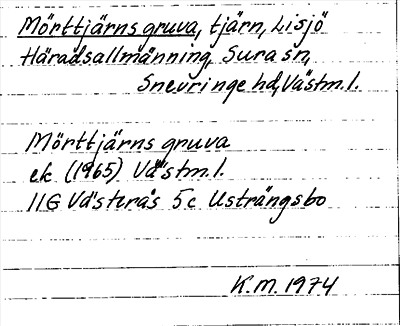 Mörttjärns gruva, tjärn, Lisjö
Häradsallmänning, Sura sn,
Snevringe hd, Västm.l.
Mörttjärns gruva
ek (1965) Västm.l.
11G Västerås 5c Usträngsbo
K.M. 1974